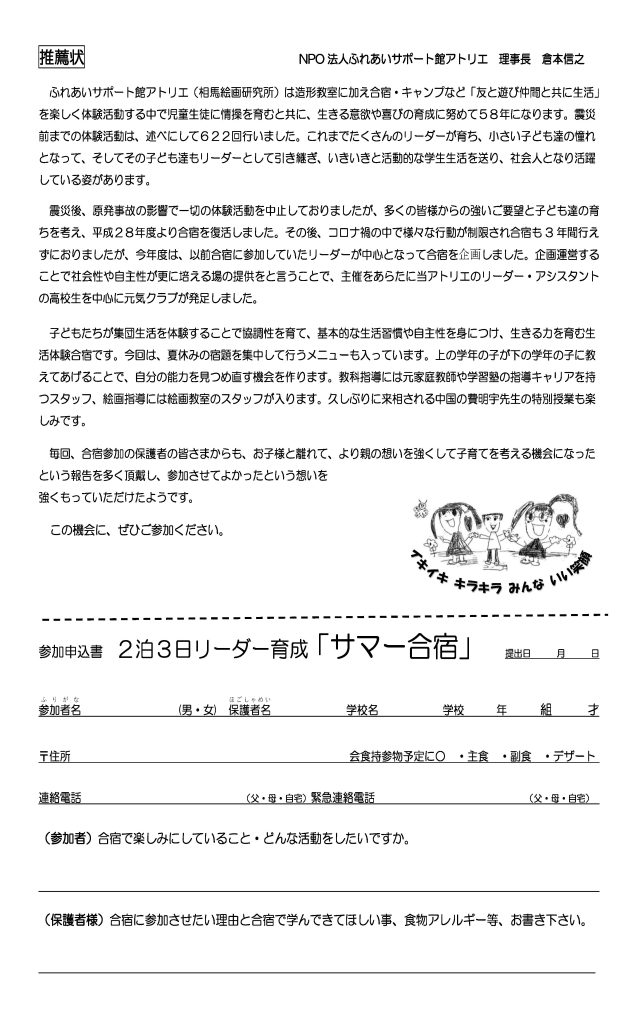 推薦状 NPO 法人ふれあいサポート館アトリエ 理事長 倉本信之
ふれあいサポート館アトリエ（相馬絵画研究所）は造形教室に加え合宿・キャンプなど「友と遊び仲間と共に生活」
を楽しく体験活動する中で児童生徒に情操を育むと共に、生きる意欲や喜びの育成に努めて５８年になります。震災
前までの体験活動は、述べにして６２２回行いました。これまでたくさんのリーダーが育ち、小さい子ども達の憧れ
となって、そしてその子ども達もリーダーとして引き継ぎ、いきいきと活動的な学生生活を送り、社会人となり活躍
している姿があります。
震災後、原発事故の影響で一切の体験活動を中止しておりましたが、多くの皆様からの強いご要望と子ども達の育
ちを考え、平成２８年度より合宿を復活しました。その後、コロナ禍の中で様々な行動が制限され合宿も 3 年間行え
ずにおりましたが、今年度は、以前合宿に参加していたリーダーが中心となって合宿を企画しました。企画運営する
ことで社会性や自主性が更に培える場の提供をと言うことで、主催をあらたに当アトリエのリーダー・アシスタント
の高校生を中心に元気クラブが発足しました。
子どもたちが集団生活を体験することで協調性を育て、基本的な生活習慣や自主性を身につけ、生きる力を育む生
活体験合宿です。今回は、夏休みの宿題を集中して行うメニューも入っています。上の学年の子が下の学年の子に教
えてあげることで、自分の能力を見つめ直す機会を作ります。教科指導には元家庭教師や学習塾の指導キャリアを持
つスタッフ、絵画指導には絵画教室のスタッフが入ります。久しぶりに来相される中国の費明宇先生の特別授業も楽
しみです。
毎回、合宿参加の保護者の皆さまからも、お子様と離れて、より親の想いを強くして子育てを考える機会になった
という報告を多く頂戴し、参加させてよかったという想いを
強くもっていただけたようです。
この機会に、ぜひご参加ください。
イキイキ キラキラ みんな いい笑顔
参加申込書 ２泊３日リーダー育成「サマー合宿」 提出日 月 日
ふりがな ほごしゃめい
参加者名 (男・女) 保護者名 学校名 学校 年 組 才
〒住所 会食持参物予定に〇 ・主食 ・副食 ・デザート
連絡電話 （父・母・自宅）緊急連絡電話 （父・母・自宅）
（参加者）合宿で楽しみにしていること・どんな活動をしたいですか。
（保護者様）合宿に参加させたい理由と合宿で学んできてほしい事、食物アレルギー等、お書き下さい。